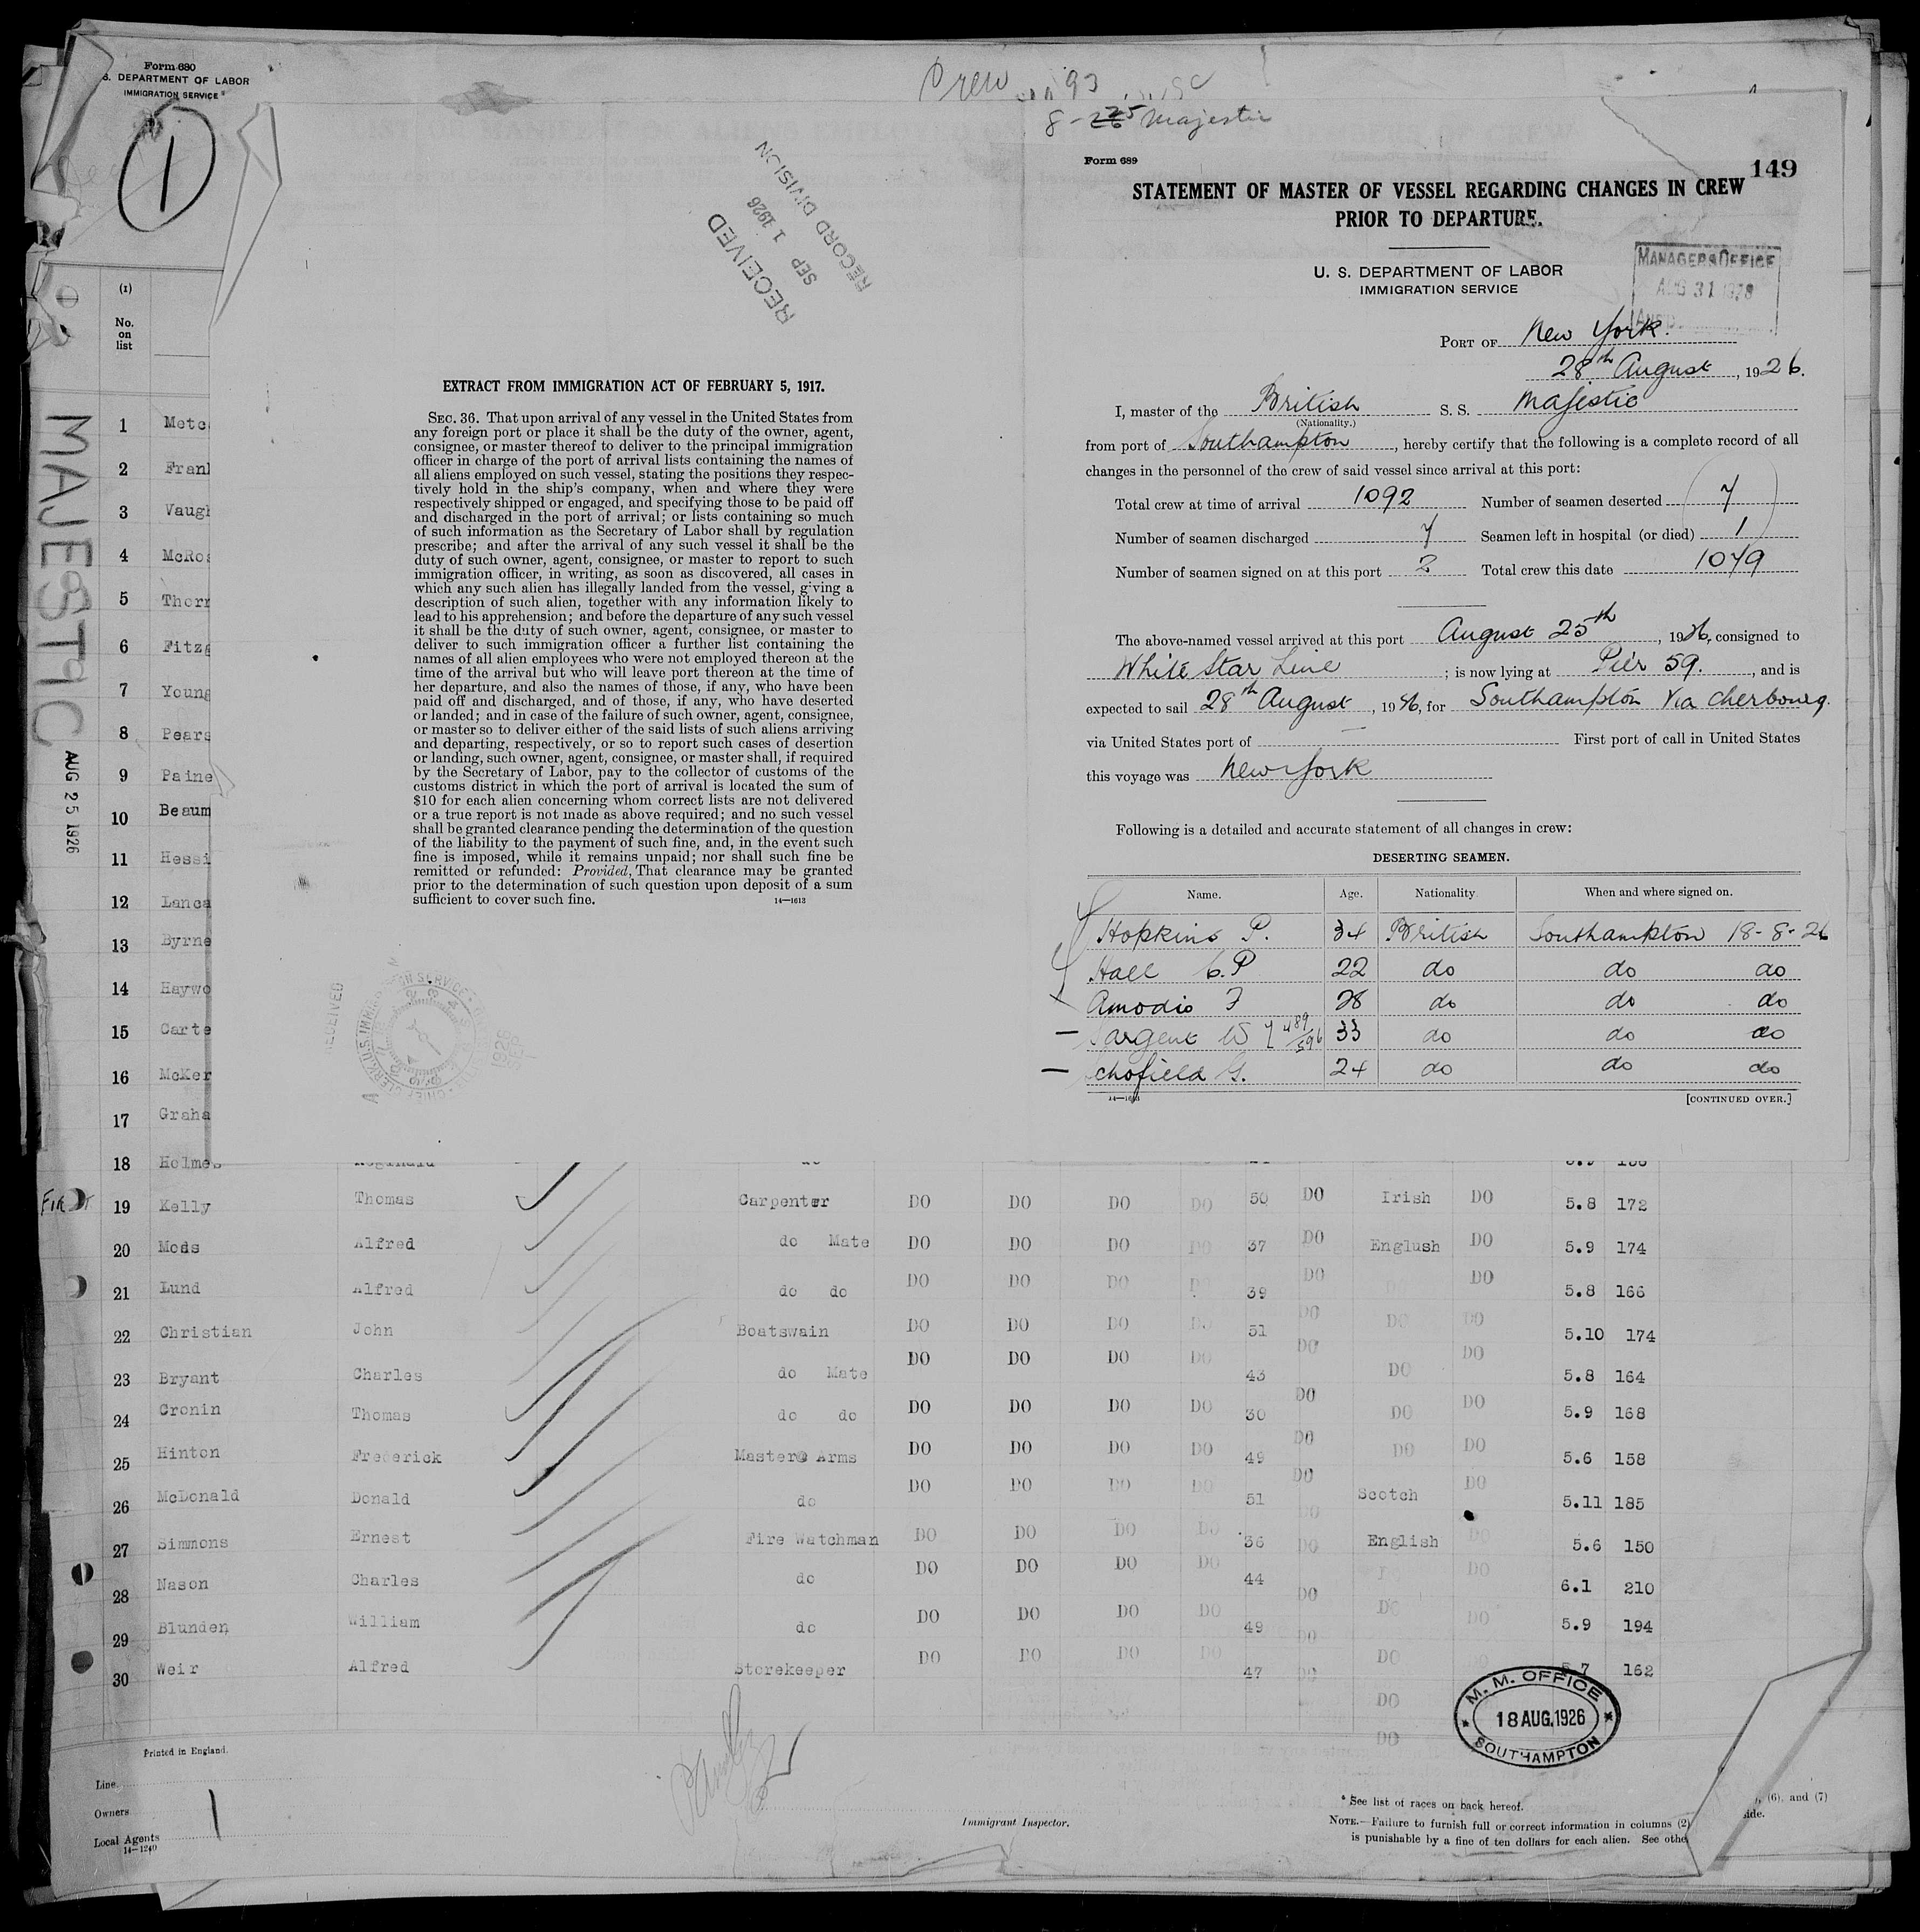 Form 680
S. DEPARTMENT OF LABOR
IMMIGRATION SERVICE
1
Crew 93
8-25 Majestic
RECEIVED
SEP 1 1926
RECORD DIVISION
Form 689
149
STATEMENT OF MASTER OF VESSEL REGARDING CHANGES IN CREW
PRIOR TO DEPARTURE.
U. S. DEPARTMENT OF LABOR
IMMIGRATION SERVICE
MANAGERS OFFICE
AUG 31
PORT OF New York.
28th August, 1926.
I, master of the British S. S. Majestic
(Nationality.)
from port of Southampton, hereby certify that the following is a complete record of all
changes in the personnel of the crew of said vessel since arrival at this port:
Total crew at time of arrival 1092 Number of seamen deserted 7
Number of seamen discharged 7 Seamen left in hospital (or died) 1
Number of seamen signed on at this port 2 Total crew this date 1079
The above-named vessel arrived at this port August 25th, 1926, consigned to
White Star Line; is now lying at Pier 59., and is
expected to sail 28th August, 1926, for Southampton Via Cherbourg.
via United States port of — First port of call in United States
this voyage was New York
Following is a detailed and accurate statement of all changes in crew:
DESERTING SEAMEN.
Name. Age. Nationality When and where signed on.
Hopkins P. 34 British Southampton 18-8-26
Hall C.P 22 do do do
Amodio F 28 do do do
Sargent W 489/596 33 do do do
Schofield G. 24 do do do
14—1613
[CONTINUED OVER.]
EXTRACT FROM IMMIGRATION ACT OF FEBRUARY 5, 1917.
SEC. 36. That upon arrival of any vessel in the United States from
any foreign port or place it shall be the duty of the owner, agent,
consignee, or master thereof to deliver to the principal immigration
officer in charge of the port of arrival lists containing the names of
all aliens employed on such vessel, stating the positions they respec-
tively hold in the ship's company, when and where they were
respectively shipped or engaged, and specifying those to be paid off
and discharged in the port of arrival; or lists containing so much
of such information as the Secretary of Labor shall by regulation
prescribe; and after the arrival of any such vessel it shall be the
duty of such owner, agent, consignee, or master to report to such
immigration officer, in writing, as soon as discovered, all cases in
which any such alien has illegally landed from the vessel, giving a
description of such alien, together with any information likely to
lead to his apprehension; and before the departure of any such vessel
it shall be the duty of such owner, agent, consignee, or master to
deliver to such immigration officer a further list containing the
names of all alien employees who were not employed thereon at the
time of the arrival but who will leave port thereon at the time of
her departure, and also the names of those, if any, who have been
paid off and discharged, and of those, if any, who have deserted
or landed; and in case of the failure of such owner, agent, consignee,
or master so to deliver either of the said lists of such aliens arriving
and departing, respectively, or so to report such cases of desertion
or landing, such owner, agent, consignee, or master shall, if required
by the Secretary of Labor, pay to the collector of customs of the
customs district in which the port of arrival is located the sum of
$10 for each alien concerning whom correct lists are not delivered
or a true report is not made as above required; and no such vessel
shall be granted clearance pending the determination of the question
of the liability to the payment of such fine, and, in the event such
fine is imposed, while it remains unpaid; nor shall such fine be
remitted or refunded: Provided, That clearance may be granted
prior to the determination of such question upon deposit of a sum
sufficient to cover such fine.
14—1613
MAJESTIC AUG 25 1926
(1)
No.
on
list
1 Metc
2 Frank
3 Vaugh
4 McRos
5 Thorn
6 Fitzg
7 Young
8 Pears
9 Paine
10 Beaum
11 Hessi
12 Lanca
13 Byrne
14 Haywo
15 Carte
16 McKer
17 Graha
18 Holmes Reginald do
19 Kelly Thomas Carpenter DO DO DO DO 50 DO Irish DO 5.8 172
20 Moss Alfred do Mate DO DO DO DO 37 DO Englush DO 5.9 174
21 Lund Alfred do do DO DO DO D 39 DO DO DO 5.8 166
22 Christian John Boatswain DO DO DO DO 51 DO DO DO 5.10 174
23 Bryant Charles do Mate DO DO DO DO 43 DO DO DO 5.8 164
24 Cronin Thomas do do DO DO DO DO 30 DO DO DO 5.9 168
25 Hinton Frederick Master@ Arms DO DO DO DO 49 DO DO DO 5.6 158
26 McDonald Donald do DO DO DO DO 51 DO Scotch DO 5.11 185
27 Simmons Ernest Fire Watchman DO DO DO DO 36 DO English DO 5.6 150
28 Nason Charles do DO DO DO DO 44 DO DO 6.1 210
29 Blunden William do DO DO DO DO 49 DO DO DO 5.9 194
30 Weir Alfred Storekeeper DO DO DO DO 47 DO DO 5.7 162
DO
DO
M. M. OFFICE
18 AUG. 1926
SOUTHAMPTON
Printed in England.
Line
Owners
Local Agents
14—1240
Immigrant Inspector.
* See list of races on back hereof.
NOTE.—Failure to furnish full or correct information in columns (2)
is punishable by a fine of ten dollars for each alien. See othe
), (6), and (7)
side.